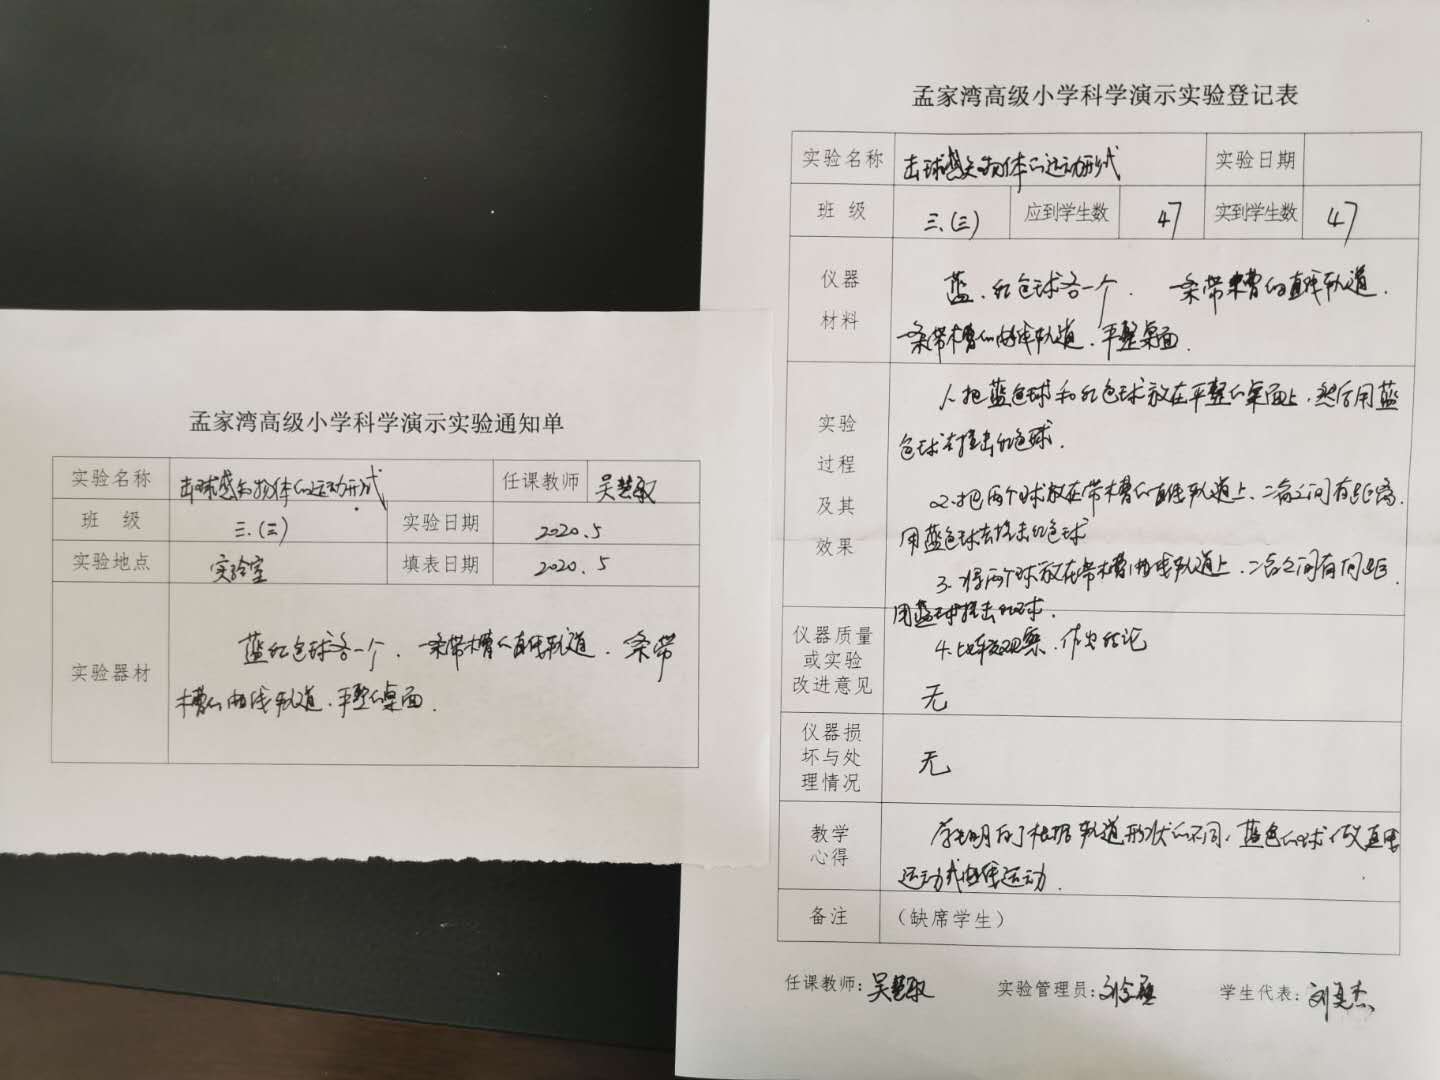 孟家湾高级小学科学演示实验通知单
实验名称 击球感知物体的运动形式 任课教师 吴慧敏
班 级 三.(三) 实验日期 2020.5
实验地点 实验室 填表日期 2020.5
实验器材
蓝红色球各一个、一条带槽的直线轨道、一条带
槽的曲线轨道、平整的桌面.
孟家湾高级小学科学演示实验登记表
实验名称 击球感知物体的运动形式 实验日期
班 级 三.(三) 应到学生数 47 实到学生数 47
仪器
材料
蓝、红色球各一个、一条带槽的直线轨道.
一条带槽的曲线轨道、平整桌面.
实验
过程
及其
效果
1.把蓝色球和红色球放在平整的桌面上,然后用蓝
色球去撞击红色球.
2.把两个球放在带槽的直线轨道上、二者之间有距离.
用蓝色球去撞击红色球
3.将两个球放在带槽曲线轨道上、二者之间有间距.
用蓝球撞击红球.
4.比较观察、作出结论
仪器质量
或实验
改进意见
无
仪器损
坏与处
理情况
无
教学
心得
学生明白了根据轨道形状的不同,蓝色的球做直线
运动或曲线运动.
备注 (缺席学生)
任课教师:吴慧敏 实验管理员:刘 学生代表:刘